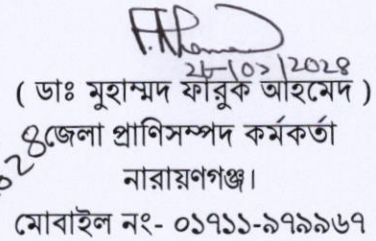 ( ডাঃ মুহাম্মদ ফারুক আহমেদ )
জেলা প্রাণিসম্পদ কর্মকর্তা
নারায়ণগঞ্জ।
মোবাইল নং- ০১৭১১-৯৭৯৯৬৭